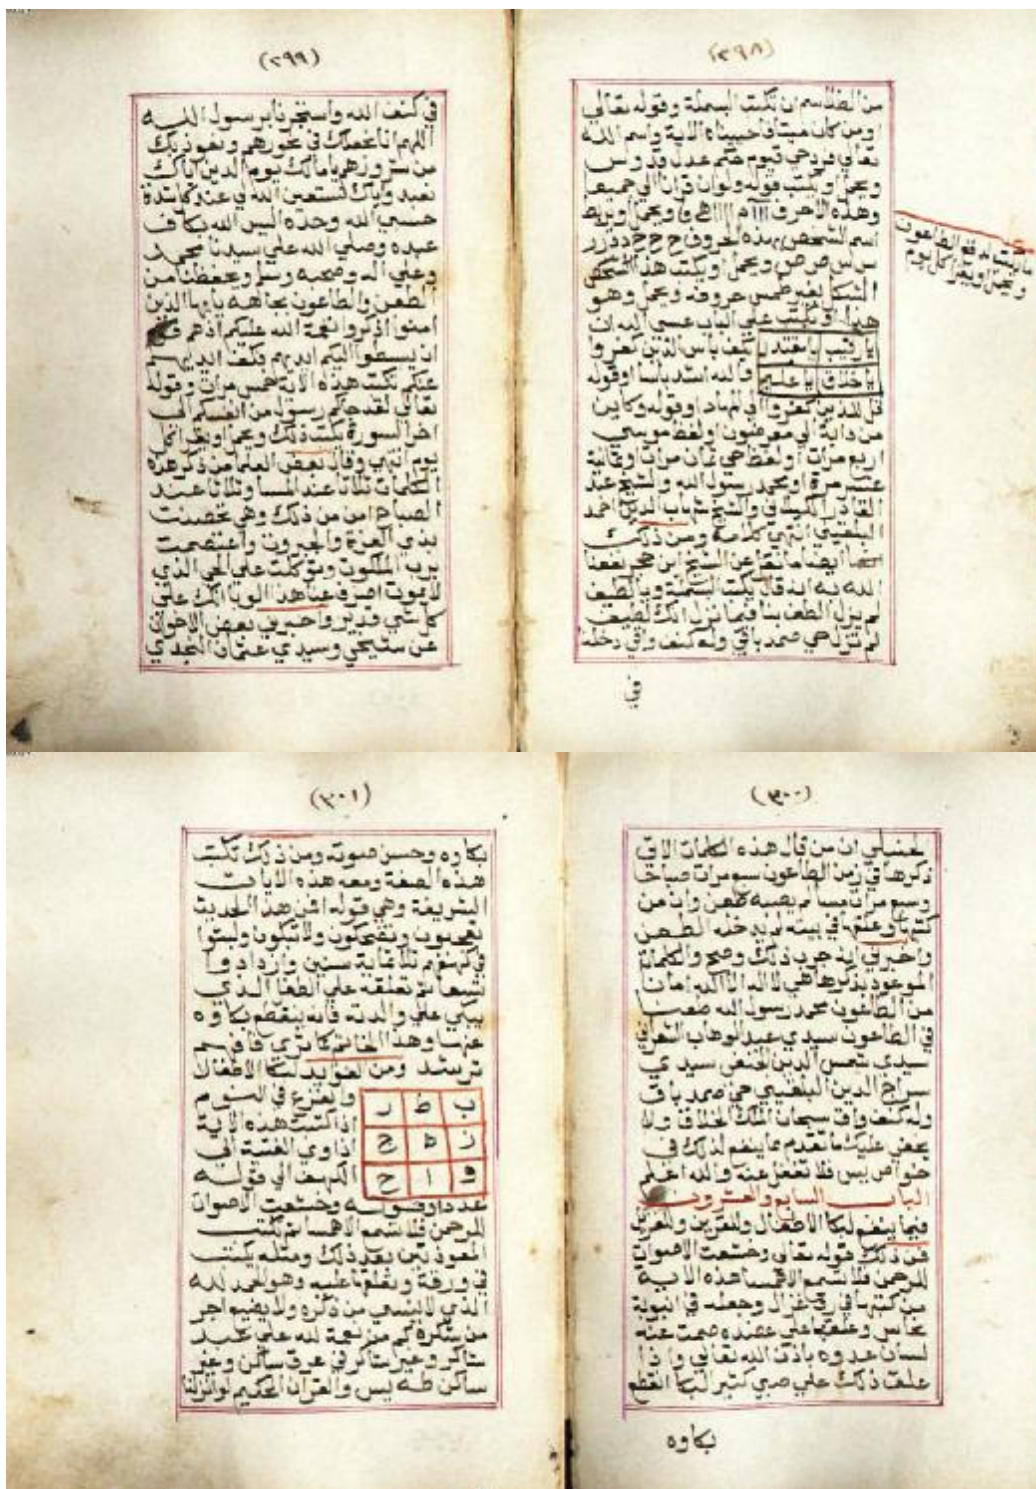 (٢٩٨)
من الطلاسم ان تكتب البسملة وقوله تعالي
اومن كان ميتا فاحييناه الاية واسم الله
تعالي فرد حي قيوم حكم عدل قدوس
ويحمل ويكتب قوله ولوان قرانا الي جميعا
وهذه الاحرف ويحمل ويربط
اسم الشخص بهذه الحروف ح ح ح د د ر ر
س س ص ص ويحمل ويكتب هذا الشكل
بغير طمس حروفه ويحمل وهو
هذا ويكتب علي الباب عسي الله ان
يكف باس الذين كفروا
والله اشد باسا وقوله
يا رقيب
يا خلاق
قل للذين كفروا الي المهاد وقوله وكاين
من دابة الي معرضون ولفظ موسي
اربع مرات ولفظ حي ثمان مرات وثمانية
عشر مرة ومحمد رسول الله والشيخ عبد
القادر الكيلاني والشيخ شهاب الدين احمد
البلقيني انتهي كلامه ومن ذلك
ايضا ما نقل عن الشيخ ابن حجر نفعنا
الله به انه قال يكتب البسملة ويا لطيف
لم يزل الطف بنا فيما نزل انك لطيف
لم تزل حي صمد باقي وله كنف واقي دخلنا
في
الطاعون
ويحمل ويقرا كل يوم
(٢٩٩)
في كنف الله واستجرنا برسول الله
اللهم انا نجعلك في نحورهم ونعوذ بك
من شرورهم يا مالك يوم الدين اياك
نعبد واياك نستعين الله لي عند كل شدة
حسبي الله وحده اليس الله بكاف
عبده وصلي الله علي سيدنا محمد
وعلي اله وصحبه وسلم ويحفظنا من
الطعن والطاعون بجاهه يايها الذين
امنوا اذكروا نعمة الله عليكم اذ هم قوم
ان يبسطوا اليكم ايديهم فكف ايديهم
عنكم تكتب هذه الاية خمس مرات وقوله
تعالي لقد جاكم رسول من انفسكم الي
اخر السورة يكتب ذلك ويحمل ويقرا كل
يوم انتهي وقال بعض العلما من ذكر هذه
الكلمات ثلاثا عند المسا وثلاثا عند
الصباح امن من ذلك وهي تحصنت
بذي العزة والجبروت واعتصمت
برب الملكوت وتوكلت علي الحي الذي
لا يموت اصرف عنا هذا الوبا انك علي
كل شي قدير واخبرني بعض الاخوان
عن شيخي وسيدي عثمان النجدي
(٣٠٠)
الحنبلي ان من قال هذه الكلمات الاتي
ذكرها في زمن الطاعون سبع مرات صباحا
وسبع مرات مسا لم يصبه طعن وان من
كتبها وعلقها في بيته لم يدخله الطعن
واخبرني انه جرب ذلك وصح والكلمات
الموعود بذكرها هي لا اله الا الله امان
من الطاعون محمد رسول الله
في الطاعون سيدي عبد الوهاب الشعراني
سيدي شمس الدين الحنفي سيدي
سراج الدين البلقيني حي صمد باق
وله كنف واق سبحان الملك الخلاق ولا
يخفي عليك ما تقدم مما ينفع لذلك في
خواص يس فلا تغفل عنه والله اعلم
الباب السابع والعشرون
فيما ينفع لبكا الاطفال وللقرين وللغزيل
فمن ذلك قوله تعالي وخشعت الاصوات
للرحمن فلا تسمع الا همسا هذه الاية
من كتبها في رق غزال وجعله في انبوبة
نحاس وعلقها علي عضده صمت عنه
لسان عدوه باذن الله تعالي واذا
علق ذلك علي صبي كثير البكا انقطع
بكاوه
(٣٠١)
بكاوه وحسن صوته ومن ذلك تكتب
هذه الصفة ومعه هذه الايات
الشريفة وهي قوله افمن هذا الحديث
تعجبون وتضحكون ولا تبكون ولبثوا
في كهفهم ثلاثماية سنين وازدادوا
تسعا ثم تعلقه علي الطفل الذي
يبكي علي والدته فانه ينقطع بكاوه
عنها وهذا الخاتم كما تري فافهم
ترشد ومن الفوايد لبكا الاطفال
والفزع في النوم
اذا كتبت هذه الاية
اذ اوي الفتية الي
الكهف الي قوله
ب ط د
ز ه ج
و ا ح
عددا وقوله وخشعت الاصوات
للرحمن فلا تسمع الا همسا ثم تكتب
المعوذتين بعد ذلك ومثله يكتب
في ورقة وتعلقها عليه وهو الحمد لله
الذي لا ينسي من ذكره ولا يضيع اجر
من شكره كم من نعمة لله علي عبد
شاكر وغير شاكر في عرق ساكن وغير
ساكن طه يس والقران الحكيم لو انزلنا